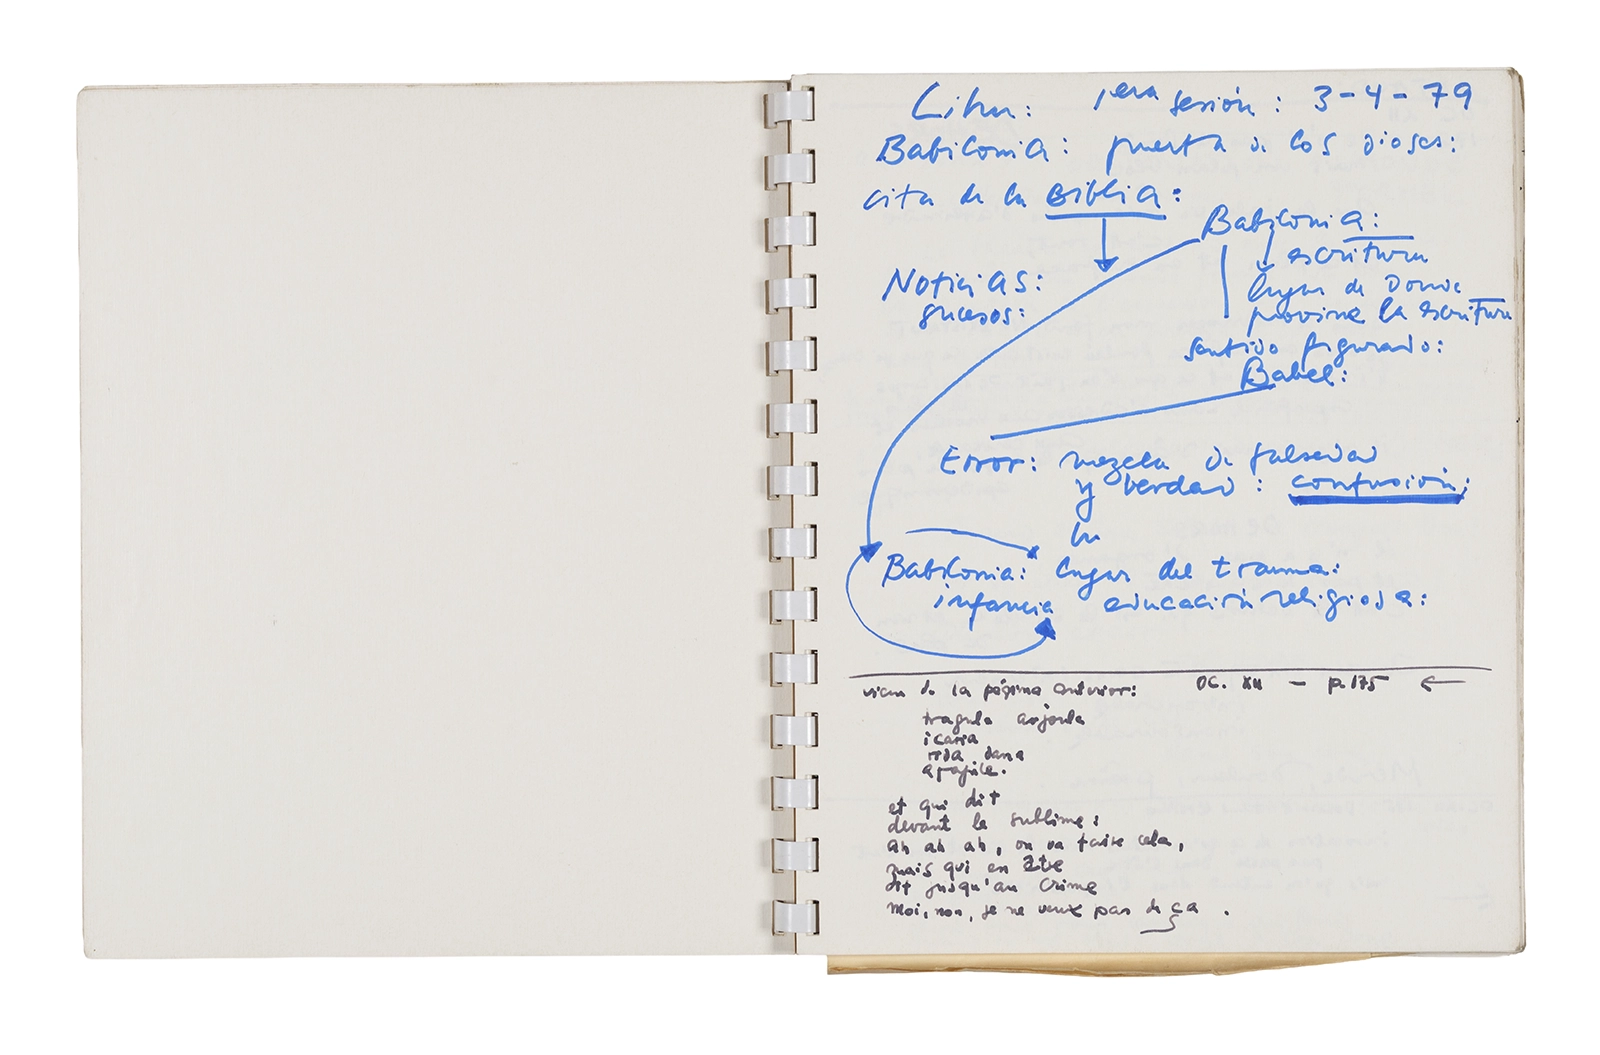 Libra: 1era sesión: 3-4-79
Babilonia: puerta de los dioses:
cita de la Biblia:
Babilonia:
escritura
lugar de donde
proviene la escritura
Noticias:
sucesos:
sentido figurado:
Babel:
Error: mezcla de falsedad
y verdad: confusión:
la
Babilonia: lugar del trauma:
infancia educación religiosa:
viene de la página anterior: OC. XII - p. 175 ←
tragula
icaria
dana
et qui dit
devant le sublime:
ah ah ah, on va faire cela,
mais qui en
dit jusqu'au crime
moi, non, je ne veux pas de ça.